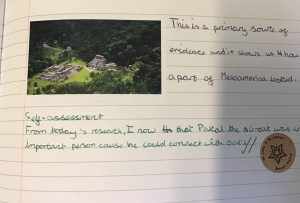 This is a primary source of
evidence and it shows us th how
a part of Mesoamerica looked.
Self-assessment
From today's research, I now that Pakal the Great was
important person cause he could connect with God's//